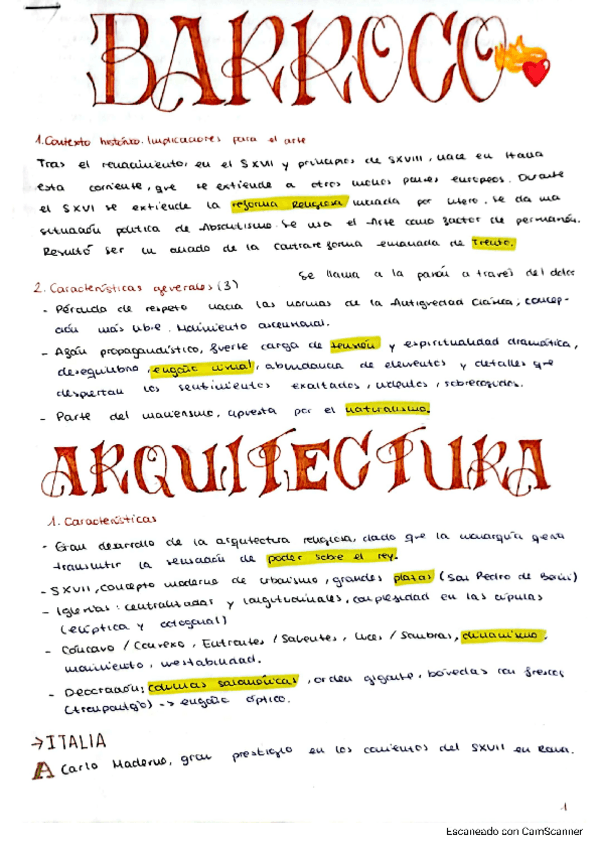 BARROCO
1. Contexto histórico. Implicaciones para el arte
Tras el renacimiento, en el SXVII y principios de SXVIII, nace en Italia
esta corriente, que se extiende a otros muchos países europeos. Durante
el SXVI se extiende la reforma Religiosa iniciada por Lutero. Se da una
situación política de Absolutismo. Se usa el Arte como factor de permanón.
Resultó ser un aliado de la Contrarreforma emanada de Trento.
Se llama a la pasión a través del dolor
2. Características generales (3)
- Pérdida de respeto hacia las normas de la Antigüedad Clásica, concep-
ción más libre. Movimiento ascensional.
- Afán propagandístico, fuerte carga de tensión y espiritualidad dramática,
desequilibrio, engaño visual, abundancia de elementos y detalles que
despiertan los sentimientos exaltados, violentos, sobrecogidos.
- Parte del manierismo, apuesta por el naturalismo.
ARQUITECTURA
1. Características
- Gran desarrollo de la arquitectura religiosa, dado que la monarquía quería
transmitir la sensación de poder sobre el rey.
- SXVII, concepto moderno de urbanismo, grandes plazas (San Pedro de Bernini)
- Iglesias: centralizadas y longitudinales, complejidad en las cúpulas
(elíptica y octogonal)
- Cóncavo / Convexo, Entrantes / Salientes, luces / Sombras, dinamismo,
movimiento, inestabilidad.
- Decoración: columnas salomónicas, orden gigante, bóvedas con frescos
(trampantojo) -> engaño óptico.
→ ITALIA
A Carlo Maderno, gran prestigio en los comienzos del SXVII en Roma.
1
Escaneado con CamScanner